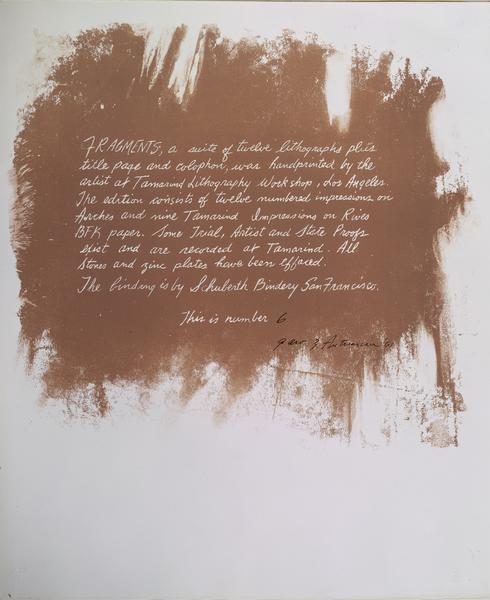 FRAGMENTS, a suite of twelve lithographs plus
title page and colophon, was handprinted by the
artist at Tamarind Lithography Workshop, Los Angeles.
The edition consists of twelve numbered impressions on
Arches and nine Tamarind Impressions on Rives
BFK paper. Some Trial, Artist and State Proofs
exist and are recorded at Tamarind. All
stones and zinc plates have been effaced.
The binding is by Schuberth Bindery San Francisco.
This is number 6